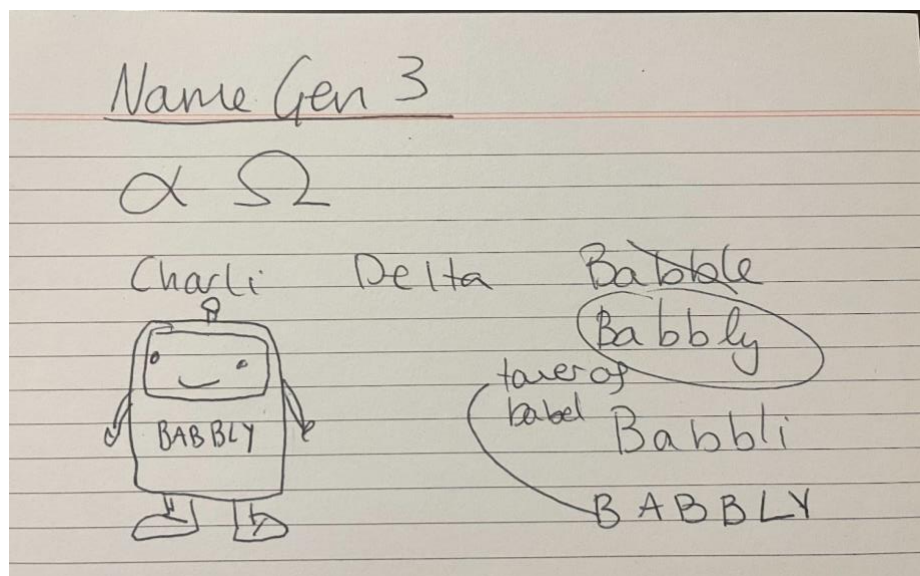 Name Gen 3
α Ω
Charli Delta Babble
Babbly
tower of
babel
Babbli
BABBLY
BABBLY